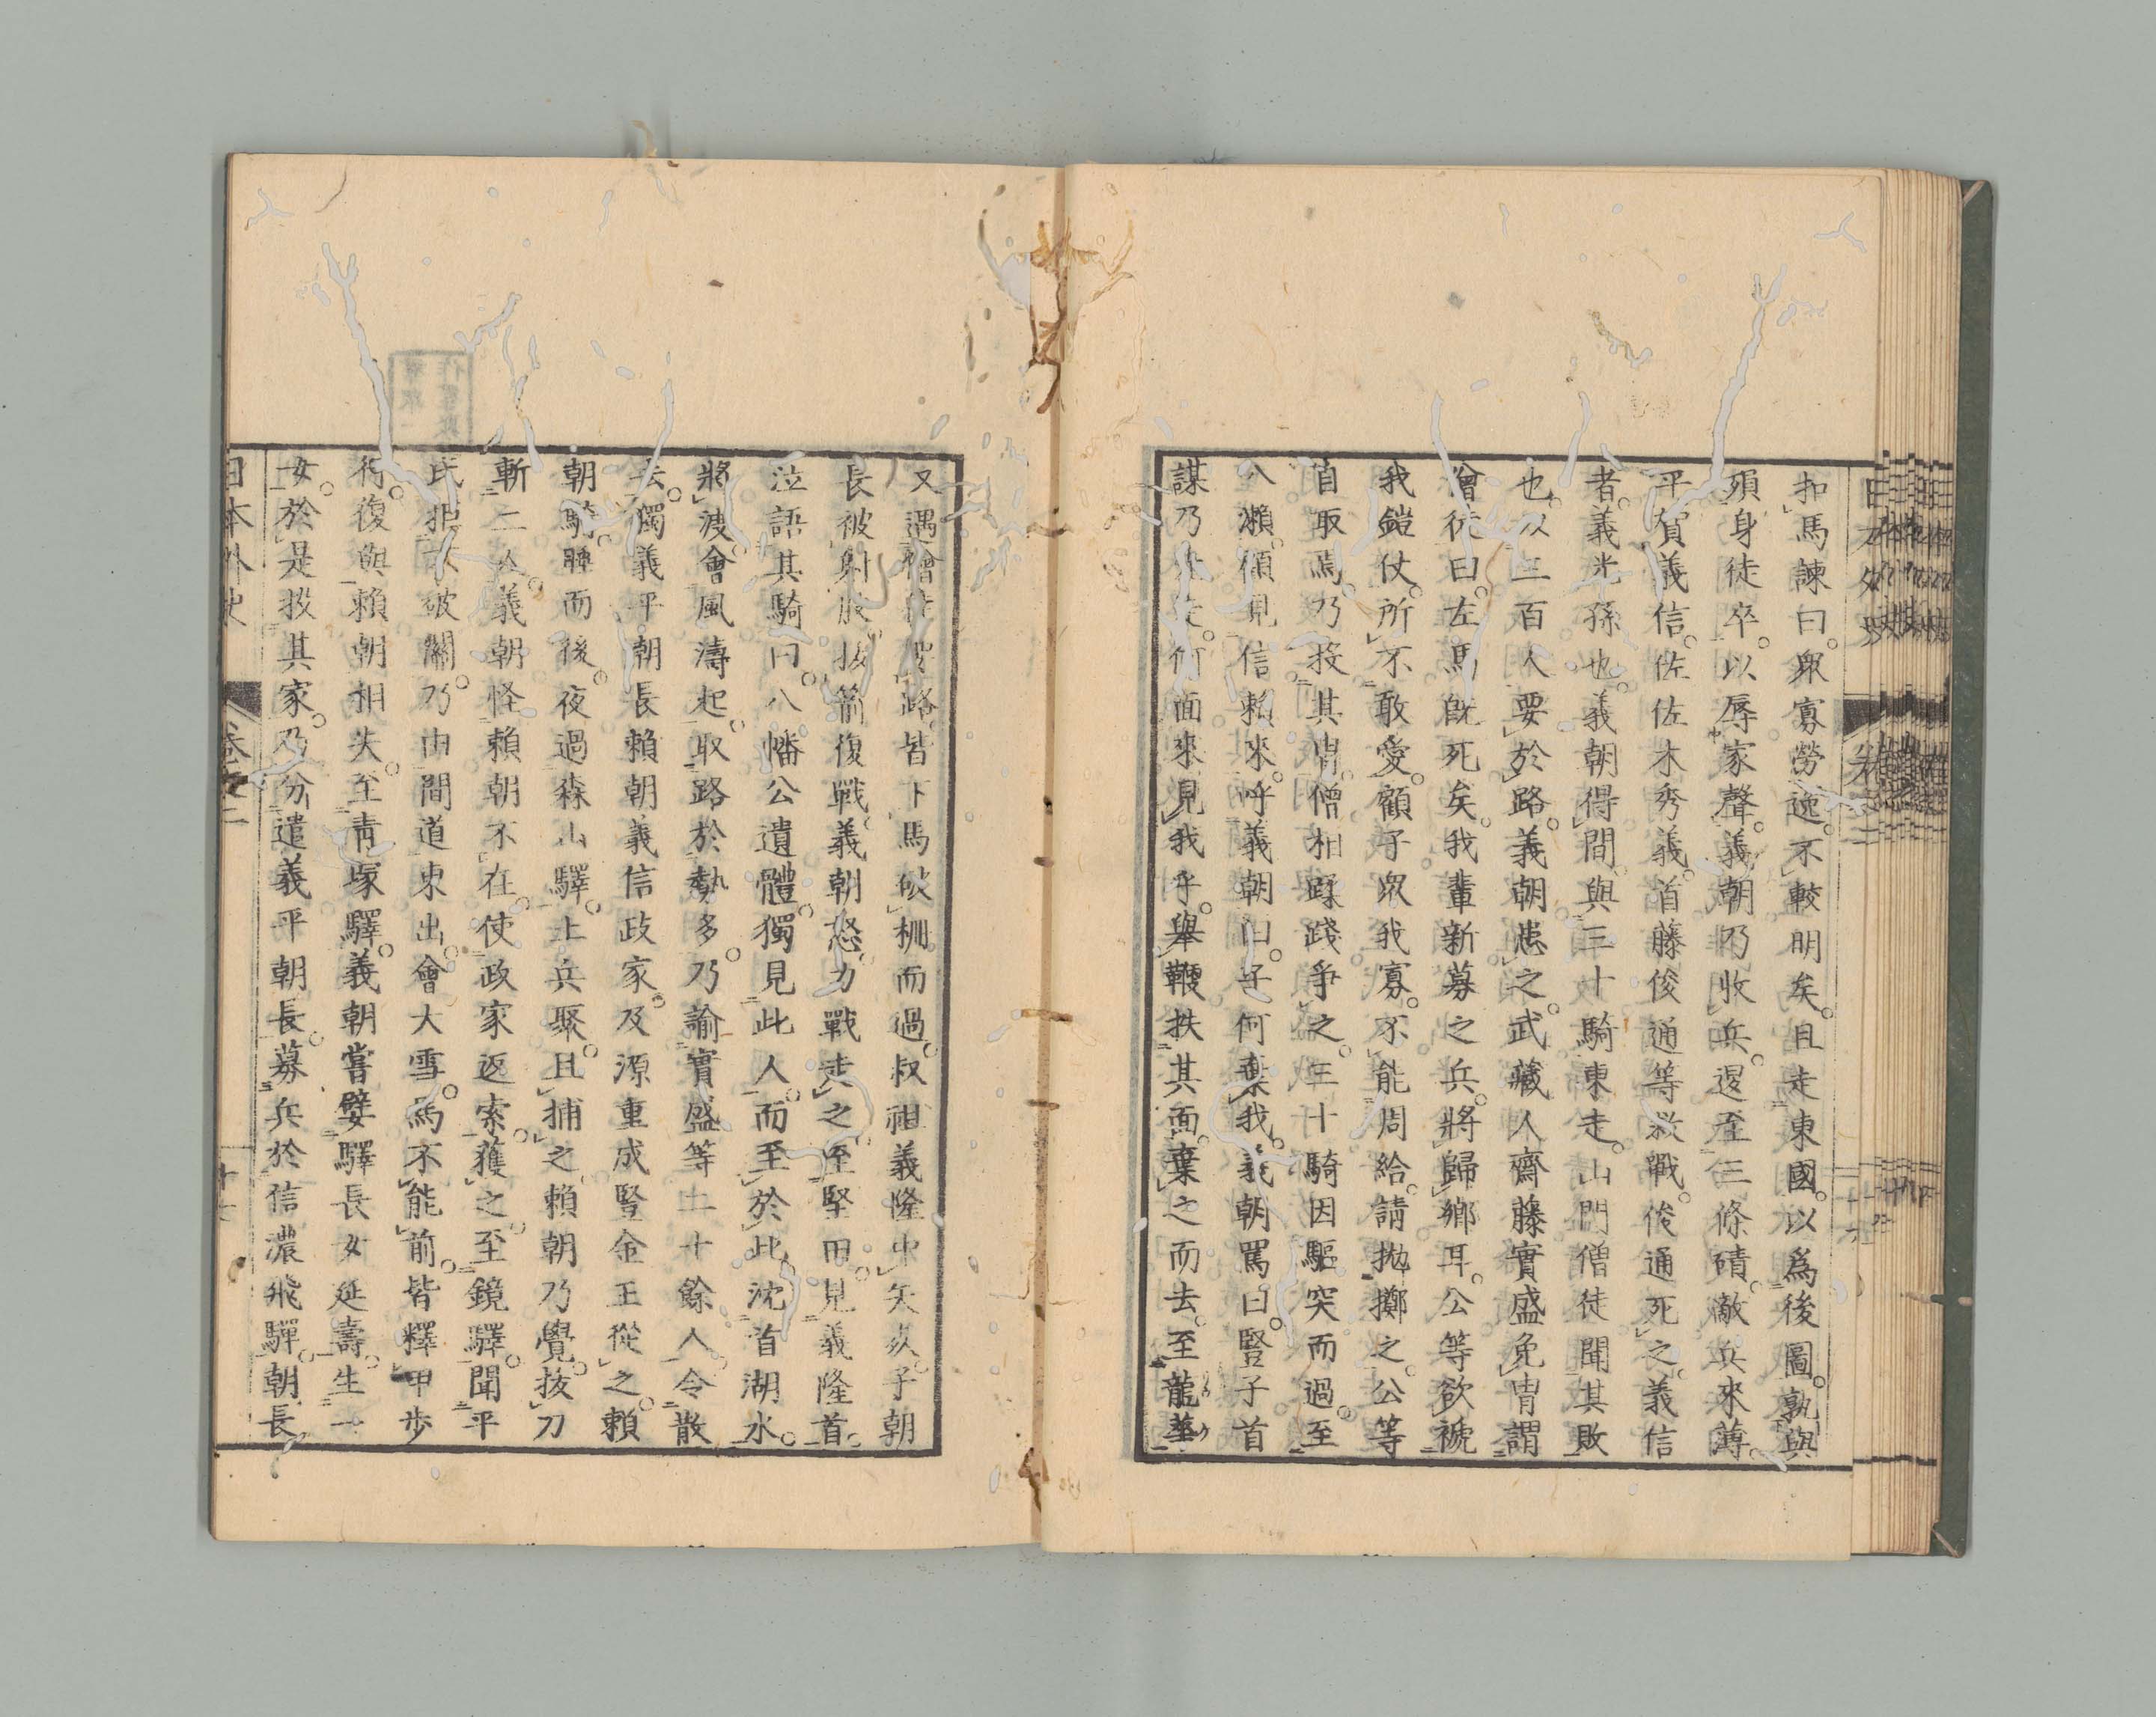 扣馬諫曰。衆寡勞逸。不較明矣。且走東國。以爲後圖。孰與
殞身徒卒。以辱家聲。義朝乃收兵。退至三條磧。敵兵來薄。
平賀義信。佐佐木秀義。首藤俊通等救戰。俊通死之。義信
者。義光孫也。義朝得間。與三十騎東走。山門僧徒聞其敗
也。以三百人要於路。義朝患之。武藏人齋藤實盛免冑謂
僧徒曰。左馬既死矣。我輩新募之兵。將歸鄉耳。公等欲褫
我鎧仗。所不敢愛。顧子衆我寡。不能周給。請拋擲之。公等
自取焉。乃投其冑。僧相蹂踐爭之。三十騎因驅突而過。至
八瀨。顧見信賴來。呼義朝曰。子何棄我。義朝罵曰。豎子首
謀乃先走。何面來見我乎。舉鞭抶其面。棄之而去。至龍華
又遇僧徒要路。皆下馬破柵而過。叔祖義隆中矢死。子朝
長被射股。拔箭復戰。義朝怒力戰走之。至堅田。見義隆首。
泣語其騎曰。八幡公遺體。獨見此人。而至於此。沈首湖水。
將渡。會風濤起。取路於勢多。乃諭實盛等二十餘人令散
去。獨義平朝長賴朝義信政家。及源重成豎金王從之。賴
朝騎睡而後。夜過森山驛。土兵聚。且捕之。賴朝乃覺。拔刀
斬二人。義朝怪賴朝不在。使政家返索。獲之。至鏡驛。聞平
氏扼不破關。乃由間道東出。會大雪。馬不能前。皆釋甲步
行。復與賴朝相失。至靑塚驛。義朝嘗嬖驛長女延壽。生一
女。於是投其家。乃分遣義平朝長。募兵於信濃飛驒。朝長
日本外史 卷之二